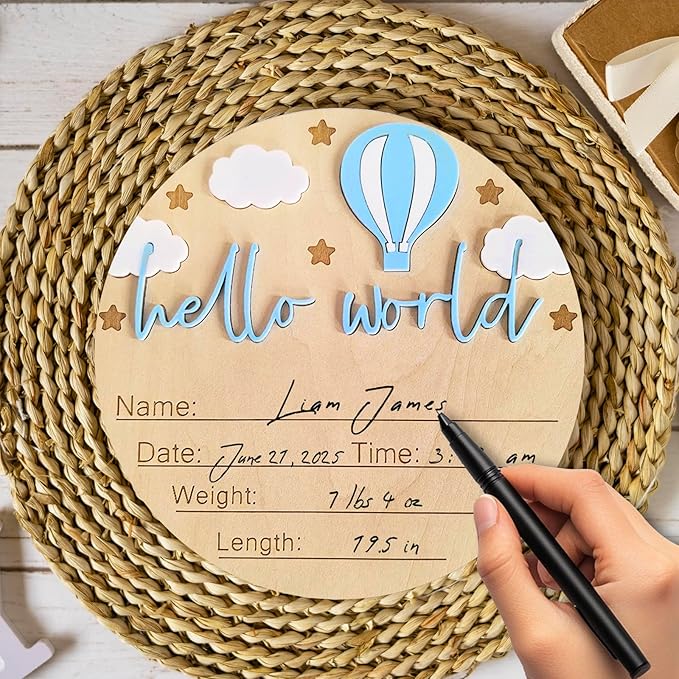 hello world
Name: Liam James
Date: June 27, 2025 Time: 3: am
Weight: 7 lbs 4 oz
Length: 19.5 in